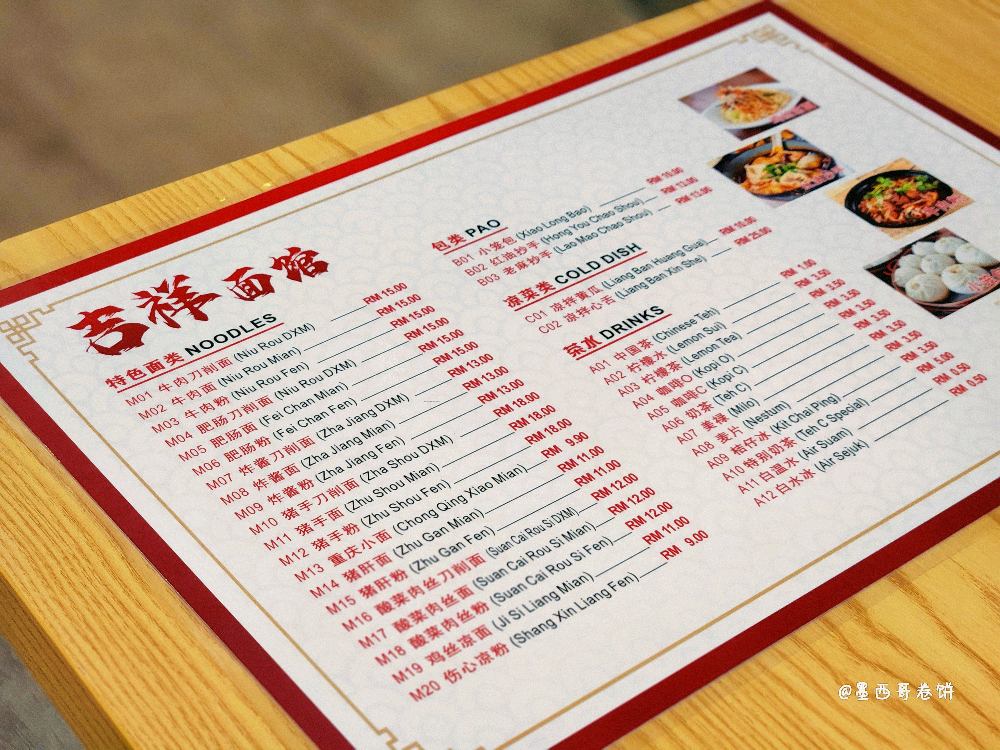 吉祥面馆
特色面类 NOODLES
M01 牛肉刀削面 (Niu Rou DXM) RM 15.00
M02 牛肉面 (Niu Rou Mian) RM 15.00
M03 牛肉粉 (Niu Rou Fen) RM 15.00
M04 肥肠刀削面 (Niu Rou DXM) RM 15.00
M05 肥肠面 (Fei Chan Mian) RM 15.00
M06 肥肠粉 (Fei Chan Fen) RM 15.00
M07 炸酱刀削面 (Zha Jiang DXM) RM 13.00
M08 炸酱面 (Zha Jiang Mian) RM 13.00
M09 炸酱粉 (Zha Jiang Fen) RM 13.00
M10 猪手刀削面 (Zha Shou DXM) RM 18.00
M11 猪手面 (Zhu Shou Mian) RM 18.00
M12 猪手粉 (Zhu Shou Fen) RM 18.00
M13 重庆小面 (Chong Qing Xiao Mian) RM 9.90
M14 猪肝面 (Zhu Gan Mian) RM 11.00
M15 猪肝粉 (Zhu Gan Fen) RM 11.00
M16 酸菜肉丝刀削面 (Suan Cai Rou Si DXM) RM 12.00
M17 酸菜肉丝面 (Suan Cai Rou Si Mian) RM 12.00
M18 酸菜肉丝粉 (Suan Cai Rou Si Fen) RM 12.00
M19 鸡丝凉面 (Ji Si Liang Mian) RM 11.00
M20 伤心凉粉 (Shang Xin Liang Fen) RM 9.00
包类 PAO
B01 小笼包 (Xiao Long Bao) RM
B02 红油抄手 (Hong You Chao Shou) RM 13.00
B03 老麻抄手 (Lao Mao Chao Shou) RM 13.00
凉菜类 COLD DISH
C01 凉拌黄瓜 (Liang Ban Huang Gua) RM 10.00
C02 凉拌心舌 (Liang Ban Xin She) RM 25.00
茶水 DRINKS
A01 中国茶 (Chinese Teh) RM 1.00
A02 柠檬水 (Lemon Sui) RM 3.50
A03 柠檬茶 (Lemon Tea) RM 3.50
A04 咖啡O (Kopi O) RM 3.50
A05 咖啡C (Kopi C) RM 3.50
A06 奶茶 (Teh C) RM 3.50
A07 美禄 (Milo) RM 3.50
A08 麦片 (Nestum) RM 3.50
A09 桔仔冰 (Kit Chai Ping) RM
A10 特别奶茶 (Teh C Special) RM
A11 白温水 (Air Suam) RM 0.50
A12 白水冰 (Air Sejuk) RM 0.50
@墨西哥卷饼